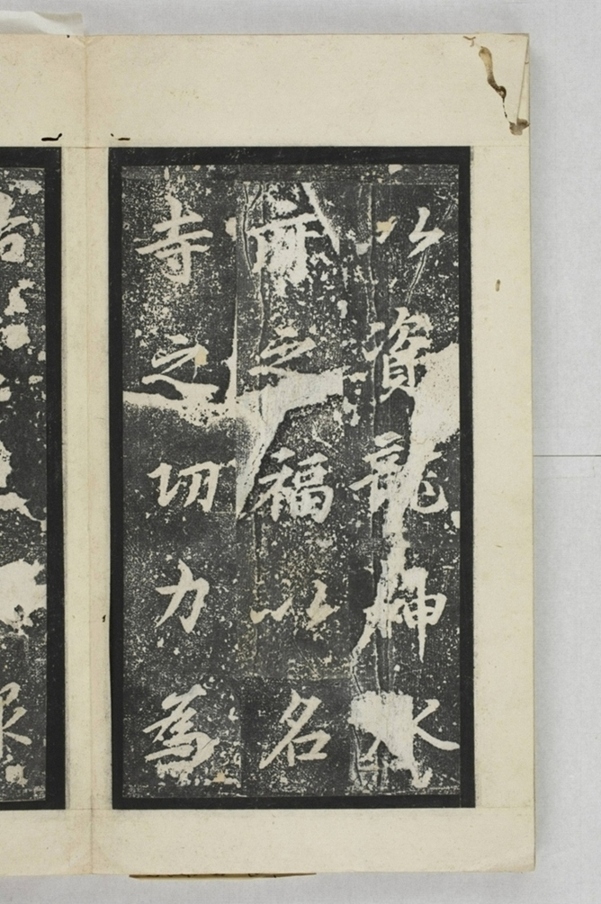 以資龍神水
府之福以名
寺之㓛力為